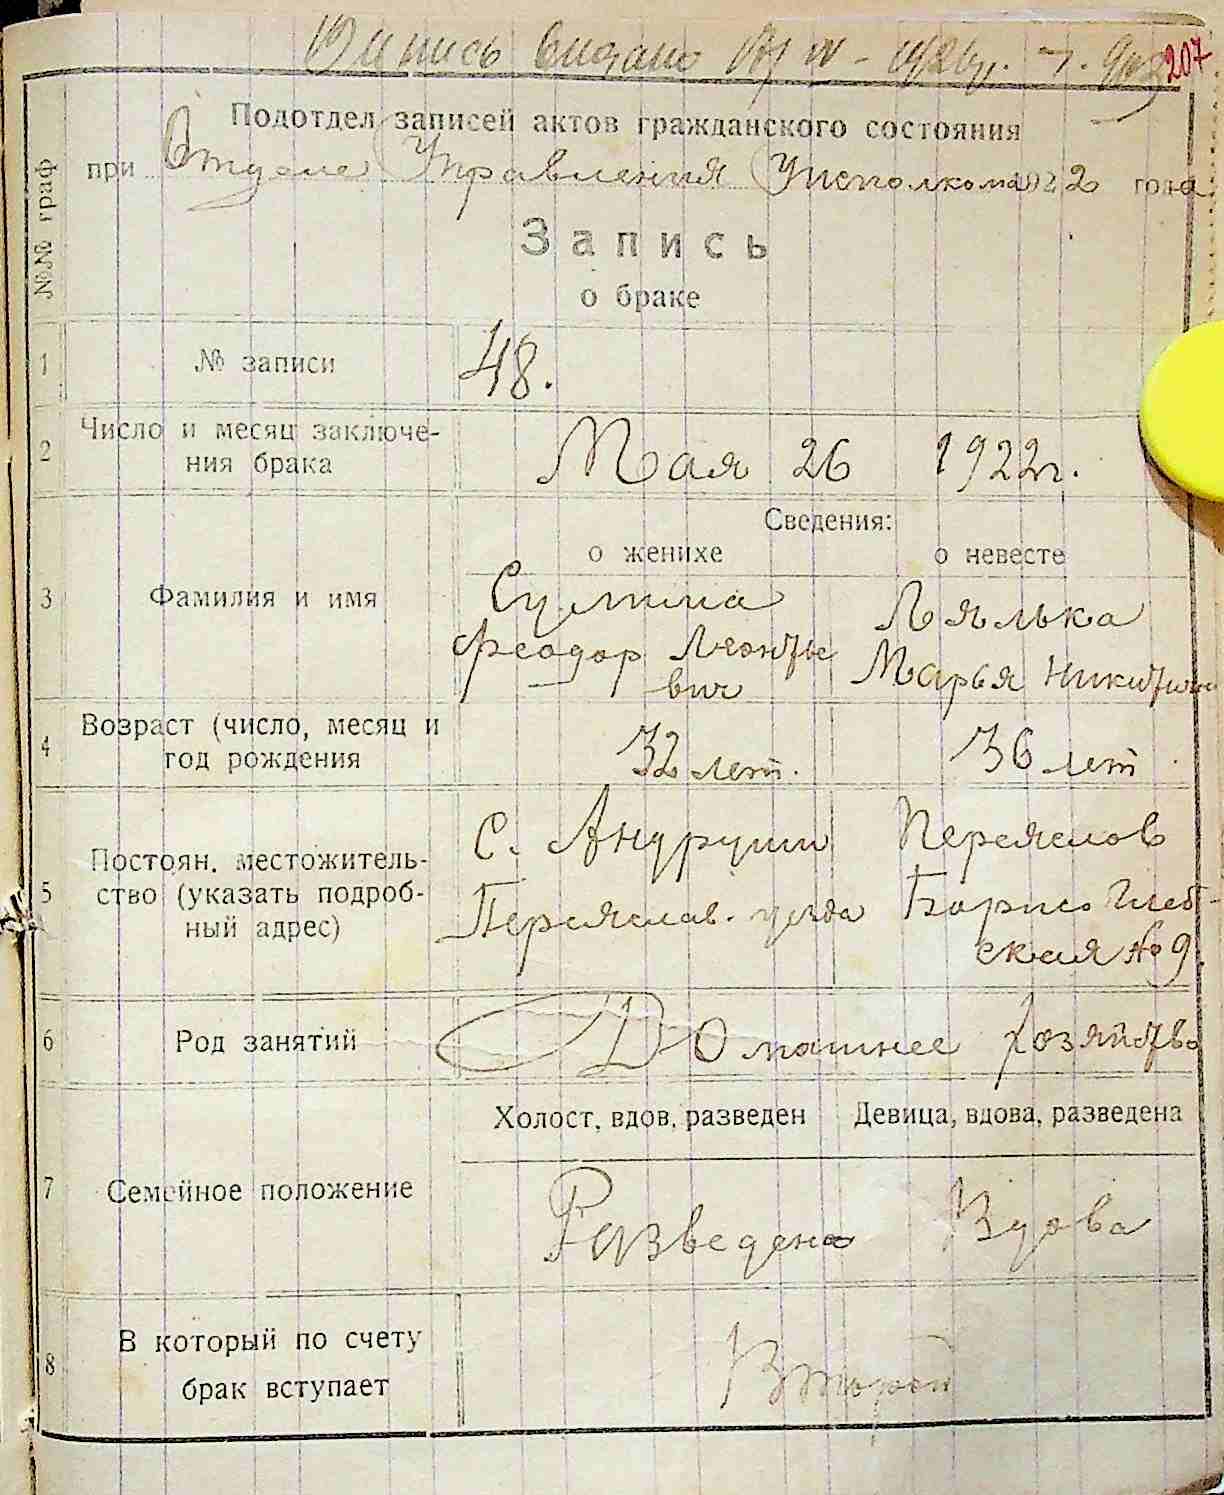 Выпись выдана
207
Подотдел записей актов гражданского состояния
при Отделе Управления Уисполкома 1922 года
№№ граф
Запись
о браке
1 № записи 48.
2 Число и месяц заключе-
ния брака Мая 26 1922 г.
Сведения:
о женихе о невесте
3 Фамилия и имя
Сулима Лялька
Феодор Леонтье
вич Марья Никитична
4 Возраст (число, месяц и
год рождения 32 лет. 36 лет
5 Постоян. местожитель-
ство (указать подроб-
ный адрес)
С. Андруши Переяслов
Переяслав. уезда Борисо Глеб-
ская № 9.
6 Род занятий Домашнее хозяйство
Холост, вдов, разведен Девица, вдова, разведена
7 Семейное положение Разведен Вдова
8 В который по счету
брак вступает Второй